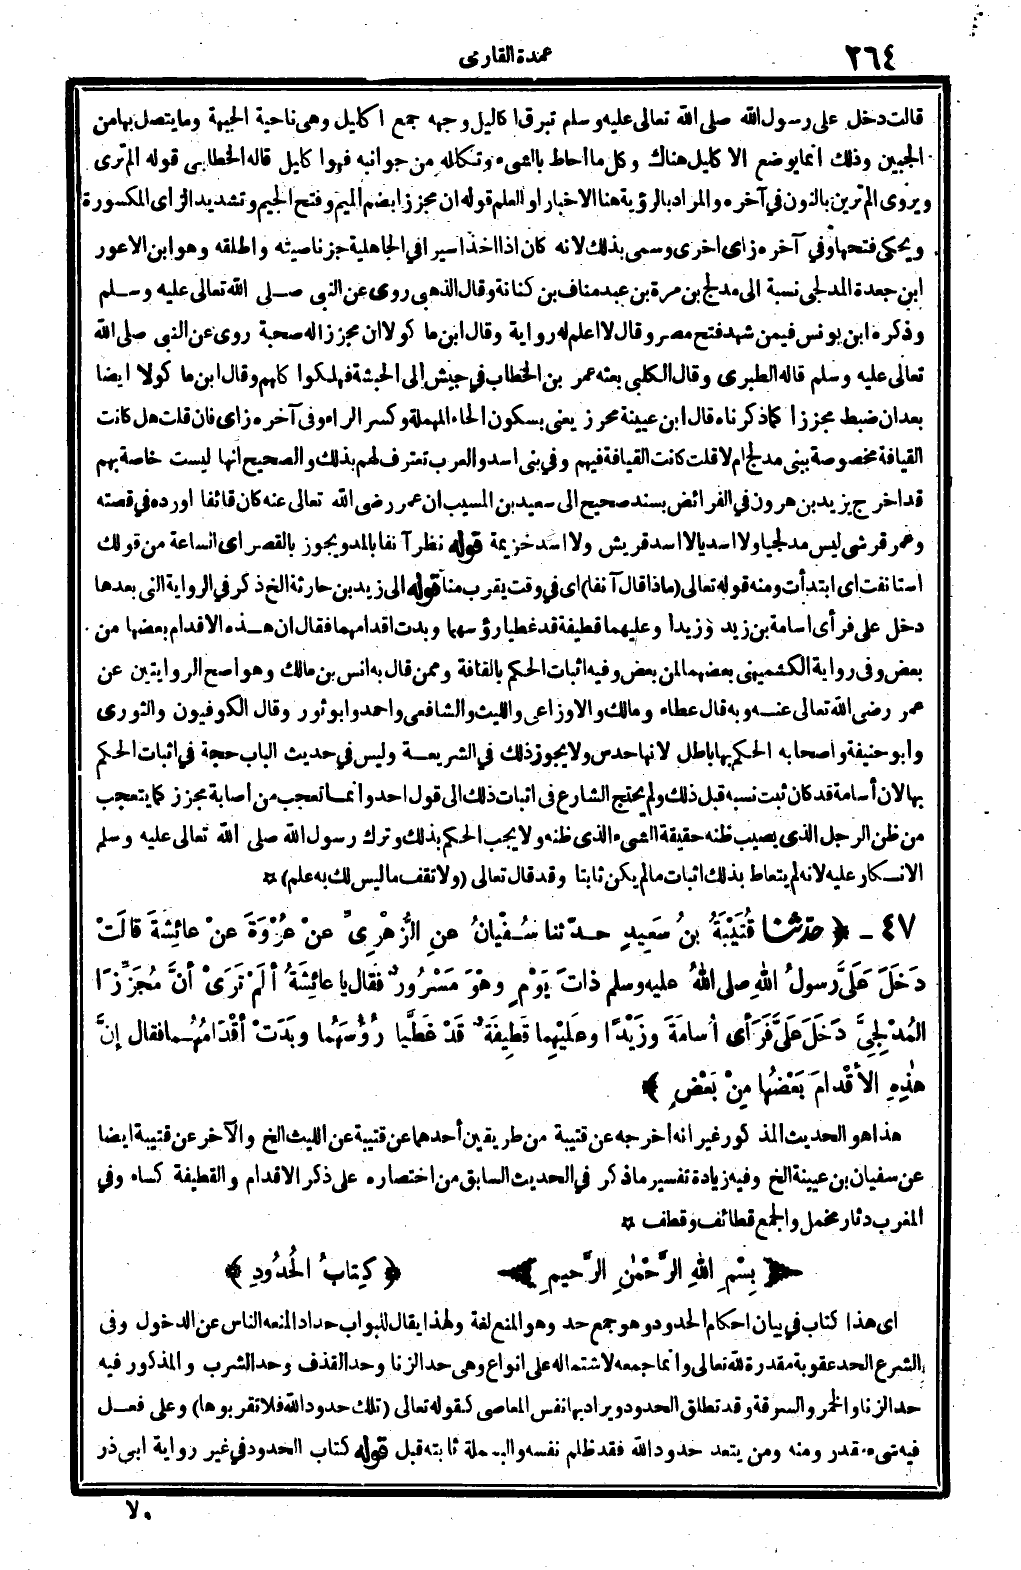 ٢٦٤
عمدة القارى
قالت دخل على رسول الله صلى الله تعالى عليه وسلم تبرق اكاليل وجهه جمع اكليل وهى ناحية الجبهة وما يتصل بها من
الجبين وذلك انما يوضع الاكليل هناك وكل ما احاط بالشىء وتكلله من جوانبه فهو اكليل قاله الخطابى قوله الم ترى
ويروى الم ترين بالنون في آخره والمراد بالرؤية هنا الاخبار او العلم قوله ان مجززا بضم الميم وفتح الجيم وتشديد الزاى المكسورة
ويحكى فتحها وفي آخره زاى اخرى وسمى بذلك لانه كان اذا اخذ اسيرا في الجاهلية جز ناصيته واطلقه وهو ابن الاعور
ابن جعدة المدلجى نسبة الى مدلج بن مرة بن عبد مناف بن كنانة وقال الذهبى روى عن النبى صلى الله تعالى عليه وسلم
وذكره ابن يونس فيمن شهد فتح مصر وقال لا اعلم له رواية وقال ابن ماكولا ان مجززا له صحبة روى عن النبى صلى الله
تعالى عليه وسلم قاله الطبرى وقال الكلبى بعثه عمر بن الخطاب في جيش إلى الحبشة فهلكوا كلهم وقال ابن ماكولا ايضا
بعد ان ضبط مجززا كما ذكرناه قال ابن عيينة محرز يعنى بسكون الحاء المهملة وكسر الراء وفى آخره زاى فان قلت هل كانت
القيافة مخصوصة ببنى مدلج ام لا قلت كانت القيافة فيهم وفي بنى اسد والعرب تعترف لهم بذلك والصحيح انها ليست خاصة بهم
قد اخرج يزيد بن هرون في الفرائض بسند صحيح الى سعيد بن المسيب ان عمر رضى الله تعالى عنه كان قائفا اورده في قصته
وعمر قرشى ليس مدلجيا ولا اسديا لا اسد قريش ولا اسد خزيمة قوله نظر آنفا بالمد ويجوز بالقصر اى الساعة من قولك
استانفت اى ابتدأت ومنه قوله تعالى (ماذا قال آنفا) اى في وقت يقرب منا قوله الى زيد بن حارثة الخ ذكر في الرواية التى بعدها
دخل على فرأى اسامة بن زيد وزيدا وعليهما قطيفة قد غطيا رؤسهما وبدت اقدامهما فقال ان هذه الاقدام بعضها من
بعض وفى رواية الكشميهنى بعضها لمن بعض وفيه اثبات الحكم بالقافة وممن قال به انس بن مالك وهو اصح الروايتين عن
عمر رضى الله تعالى عنه وبه قال عطاء ومالك والاوزاعى والليث والشافعى واحمد وابو ثور وقال الكوفيون والثورى
وابو حنيفة واصحابه الحكم بها باطل لانها حدس ولا يجوز ذلك في الشريعة وليس في حديث الباب حجة في اثبات الحكم
بها لان أسامة قد كان ثبت نسبه قبل ذلك ولم يحتج الشارع فى اثبات ذلك الى قول احد وانما تعجب من أصابة مجزز كما يتعجب
من ظن الرجل الذى يصيب ظنه حقيقة الشىء الذى ظنه ولا يجب الحكم بذلك وترك رسول الله صلى الله تعالى عليه وسلم
الانكار عليه لانه لم يتعاط بذلك اثبات ما لم يكن ثابتا وقد قال تعالى (ولا تقف ما ليس لك به علم) ¤
٤٧ - ﴿ حدّثنا قُتَيْبَةُ بنُ سَعِيدٍ حدّثنا سُفْيانُ عنِ الزُّهْرِىِّ عنْ عُرْوَةَ عنْ عائِشَةَ قالَتْ
دَخَلَ عَلَىَّ رسولُ اللهِ صلى اللهُ عليه وسلم ذاتَ يَوْمٍ وهْوَ مَسْرُورٌ فقال يا عائِشَةُ ألَمْ تَرَىْ أنَّ مُجَزِّزًا
المُدْلِجِىَّ دَخَلَ عَلَىَّ فَرَأى أُسامَةَ وزَيْدًا وعَلَيْهِما قَطِيفَةٌ قَدْ غَطَّيا رُؤُسَهُما وبَدَتْ أقْدامُهُما فقال إنَّ
هٰذِهِ الأقْدامَ بَعْضُها مِنْ بَعْضٍ ﴾
هذا هو الحديث المذكور غير انه اخرجه عن قتيبة من طريقين أحدهما عن قتيبة عن الليث الخ والآخر عن قتيبة ايضا
عن سفيان بن عيينة الخ وفيه زيادة تفسير ما ذكر في الحديث السابق من اختصاره على ذكر الاقدام والقطيفة كساء وفي
المغرب دثار مخمل والجمع قطائف وقطف ¤
﴿ بِسْمِ اللهِ الرَّحْمٰنِ الرَّحِيمِ ﴾ ﴿ كِتابُ الحُدُودِ ﴾
اى هذا كتاب في بيان احكام الحدود وهو جمع حد وهو المنع لغة ولهذا يقال للبواب حداد لمنعه الناس عن الدخول وفى
الشرع الحد عقوبة مقدرة لله تعالى وانما جمعه لاشتماله على انواع وهى حد الزنا وحد القذف وحد الشرب والمذكور فيه
حد الزنا والخمر والسرقة وقد تطلق الحدود ويراد بها نفس المعاصى كقوله تعالى (تلك حدود الله فلا تقربوها) وعلى فعل
فيه شىء مقدر ومنه ومن يتعد حدود الله فقد ظلم نفسه والبسملة ثابته قبل قوله كتاب الحدود في غير رواية ابى ذر